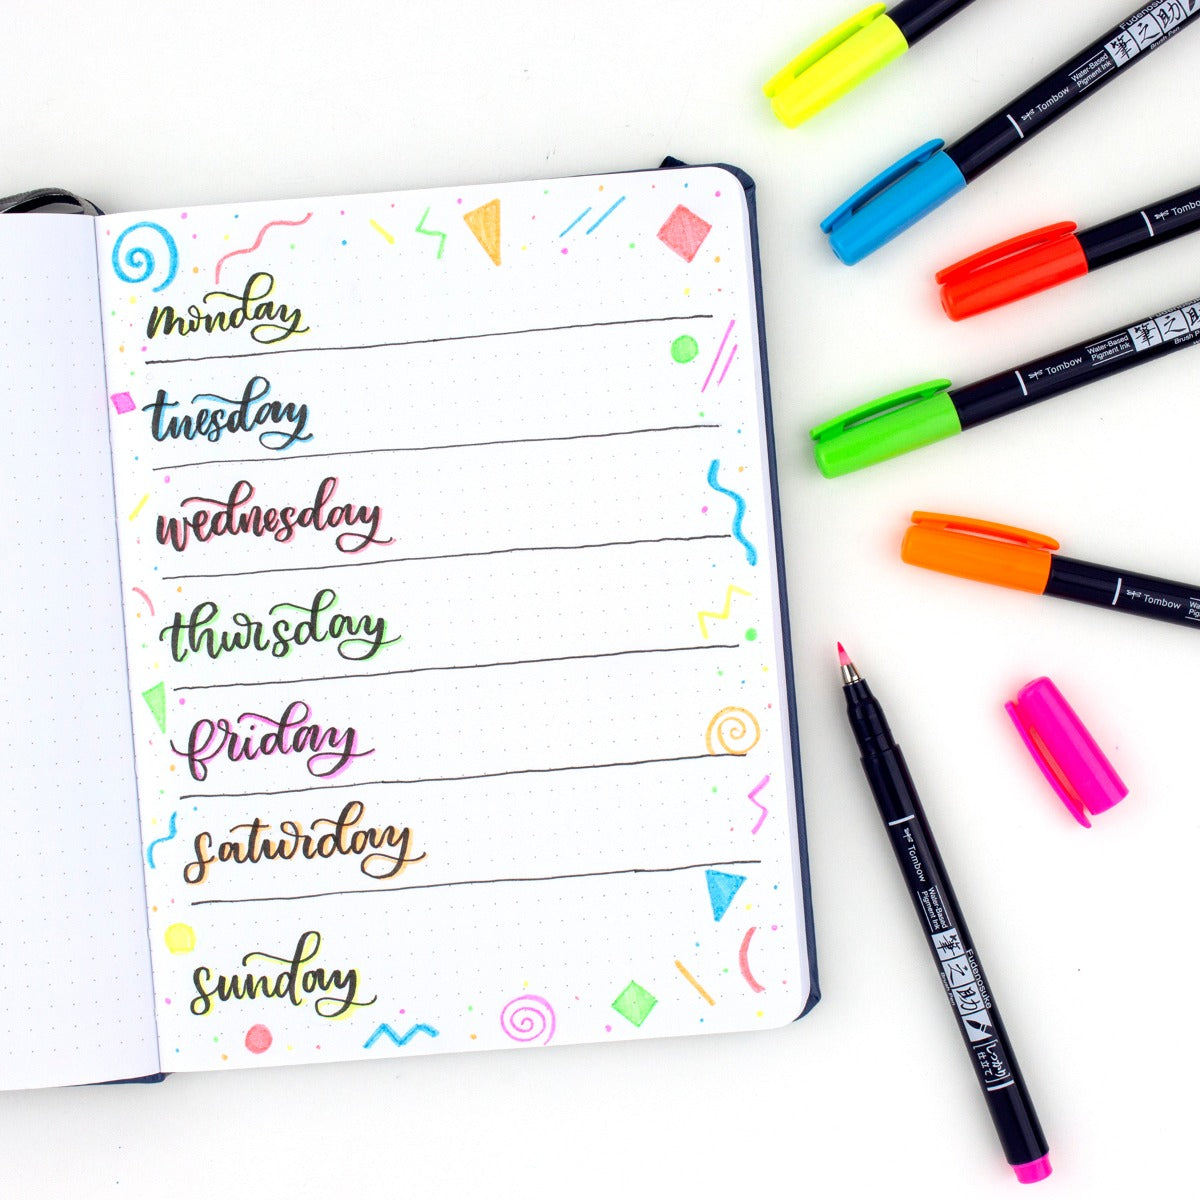 monday
tuesday
wednesday
thursday
friday
saturday
sunday
Tombow
Water-Based
Pigment Ink
筆之助
Fudenosuke
Brush Pen
Tombo
Tombow
Water-Based
Pigment Ink
筆之助
Brush Pen
Tombow
Tombow
Water-Based
Pigment Ink
筆之助
Fudenosuke
しっかり
仕立て